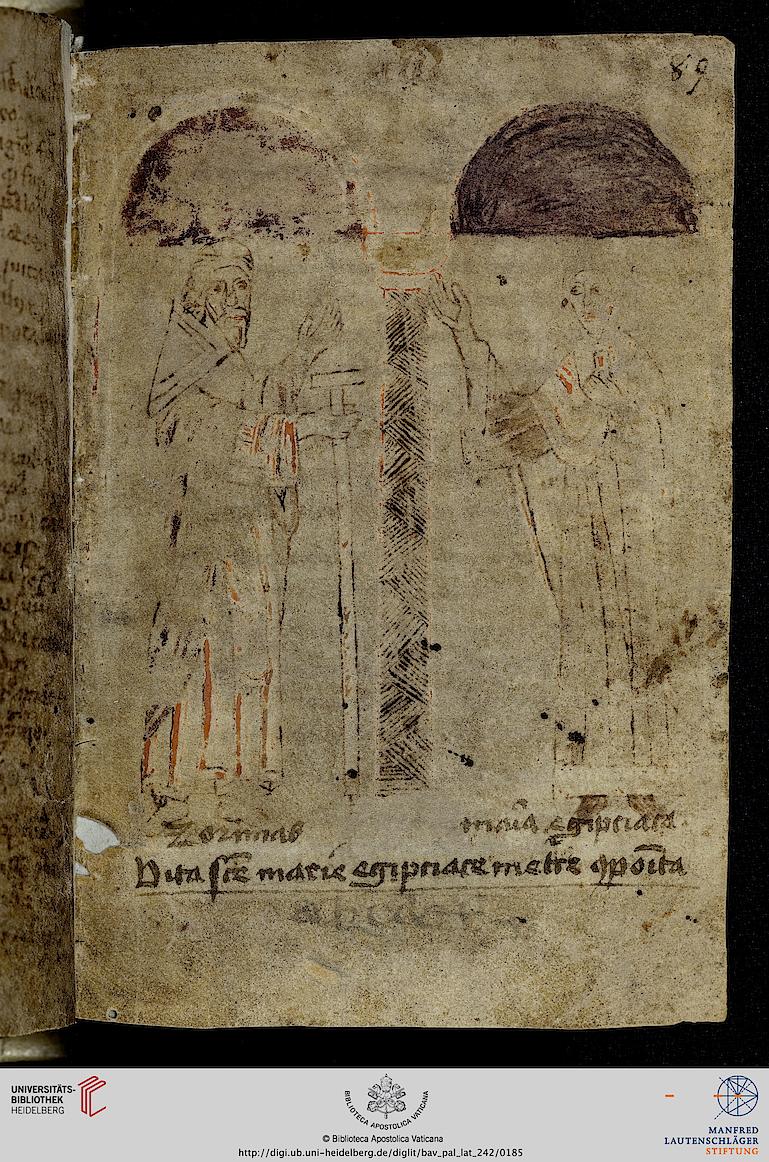 89
Zozimas
maria Egipciaca
Vita scē marie egipciace metrē 9poīta
UNIVERSITÄTS-
BIBLIOTHEK
HEIDELBERG
BIBLIOTECA APOSTOLICA VATICANA
© Biblioteca Apostolica Vaticana
http://digi.ub.uni-heidelberg.de/diglit/bav_pal_lat_242/0185
MANFRED
LAUTENSCHLÄGER
STIFTUNG